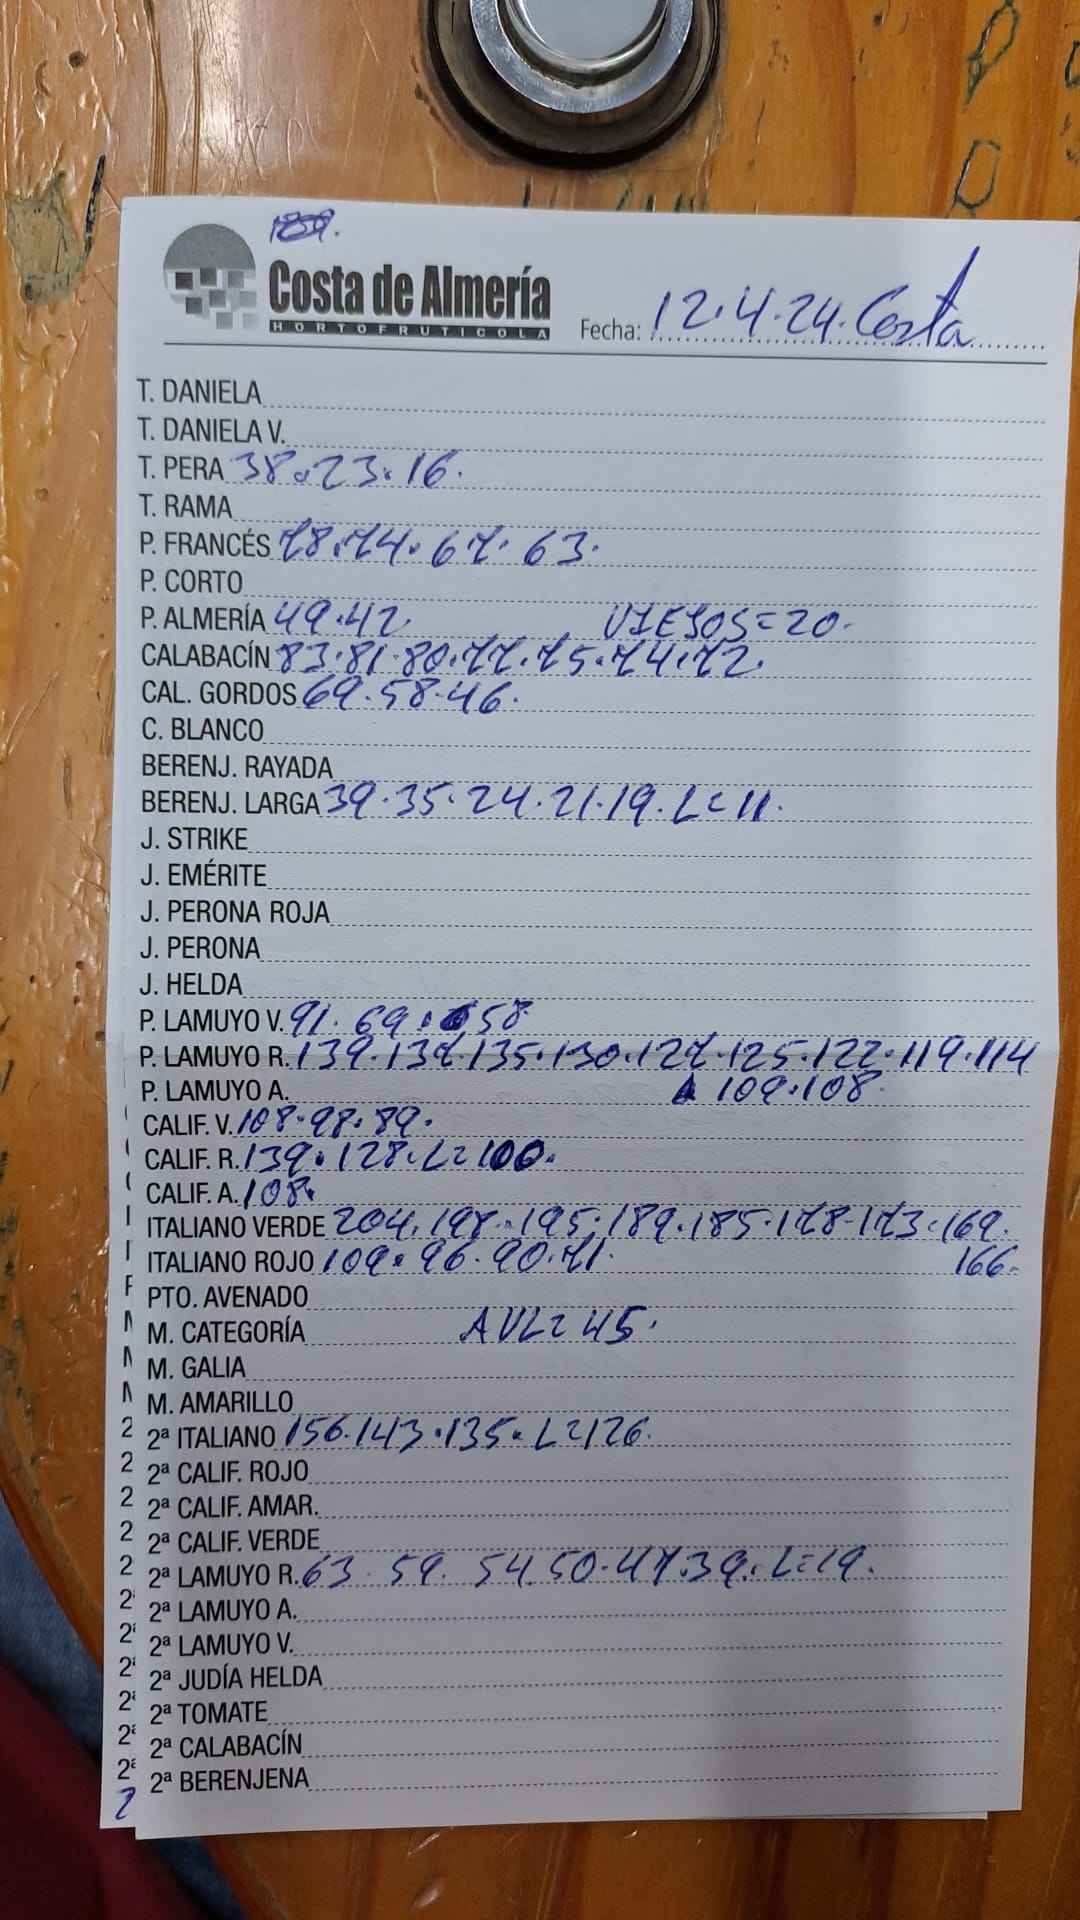 Costa de Almería
HORTOFRUTICOLA
Fecha: 12.4.24. Costa
T. DANIELA
T. DANIELA V.
T. PERA 38.23.16.
T. RAMA
P. FRANCÉS 78.74.67.63.
P. CORTO
P. ALMERÍA 49.42. VIEJOS=20.
CALABACÍN 83.81.80.77.75.74.72.
CAL. GORDOS 69.58.46.
C. BLANCO
BERENJ. RAYADA
BERENJ. LARGA 39.35.24.21.19.L=11.
J. STRIKE
J. EMÉRITE
J. PERONA ROJA
J. PERONA
J. HELDA
P. LAMUYO V. 91.69.58
P. LAMUYO R. 139.137.135.130.127.125.122.119.114
P. LAMUYO A. 109.108.
CALIF. V. 108.98.89.
CALIF. R. 139.128.L=100.
CALIF. A. 108.
ITALIANO VERDE 204.198.195.189.185.178.173.169.
ITALIANO ROJO 109.96.90.71. 166=
PTO. AVENADO
M. CATEGORÍA AVL=45.
M. GALIA
M. AMARILLO
2ª ITALIANO 156.143.135.L=126.
2ª CALIF. ROJO
2ª CALIF. AMAR.
2ª CALIF. VERDE
2ª LAMUYO R. 63.59.54.50.47.39.L=19.
2ª LAMUYO A.
2ª LAMUYO V.
2ª JUDÍA HELDA
2ª TOMATE
2ª CALABACÍN
2ª BERENJENA